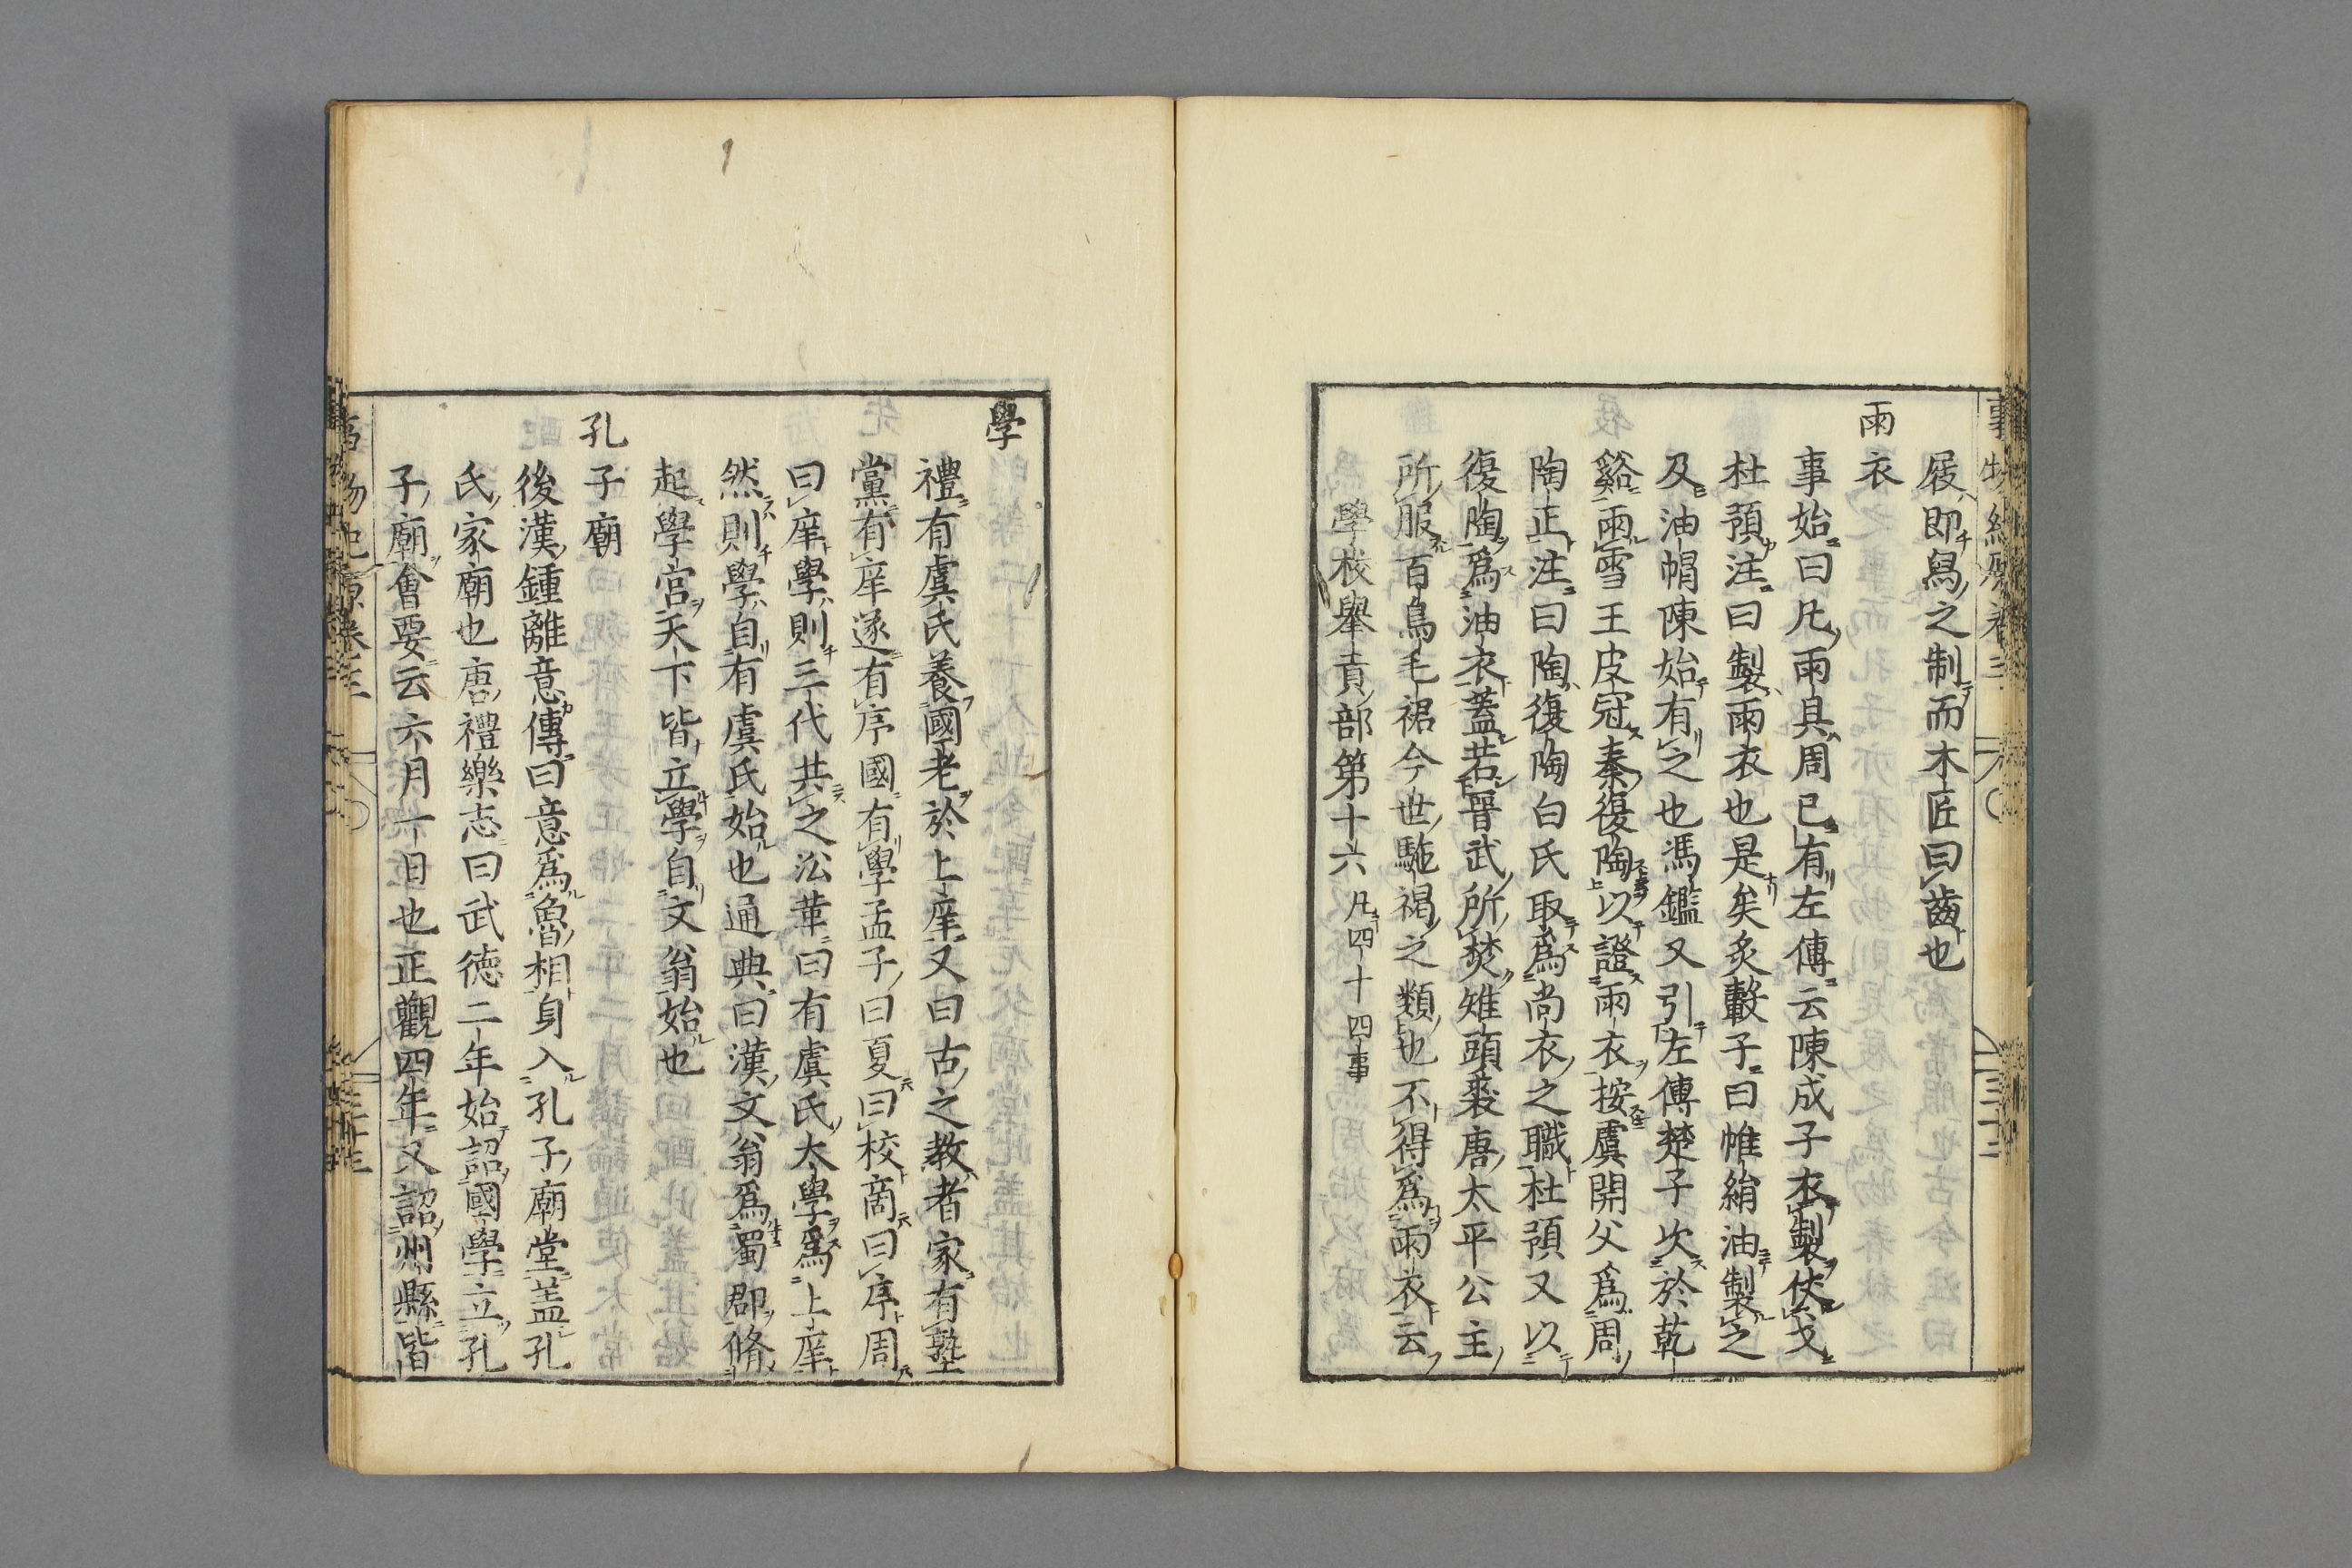 屐即舄之制而木匠曰齒也
雨衣
事始曰凡雨具周已有左傳云陳成子衣製伏戈
杜預注曰製雨衣也是矣炙轂子曰帷絹油製之
及油帽陳始有之也馮鑑又引左傳楚子次於乾
谿雨雪王皮冠秦復陶以證雨衣按虞閼父爲周
陶正注曰陶復陶白氏取爲尚衣之職杜預又以
復陶爲油衣蓋若晉武所焚雉頭裘唐太平公主
所服百鳥毛裙今世駞褐之類也不得爲雨衣云
學校舉貢部第十六 凡四十四事
學
禮有虞氏養國老於上庠又曰古之教者家有塾
黨有庠遂有序國有學孟子曰夏曰校商曰序周
曰庠學則三代共之㳂革曰有虞氏太學爲上庠
然則學自有虞氏始也通典曰漢文翁爲蜀郡脩
起學宮天下皆立學自文翁始也
孔子廟
後漢鍾離意傳曰意爲魯相身入孔子廟堂盖孔
氏家廟也唐禮樂志曰武德二年始詔國學立孔
子廟會要云六月一日也正觀四年又詔州縣皆